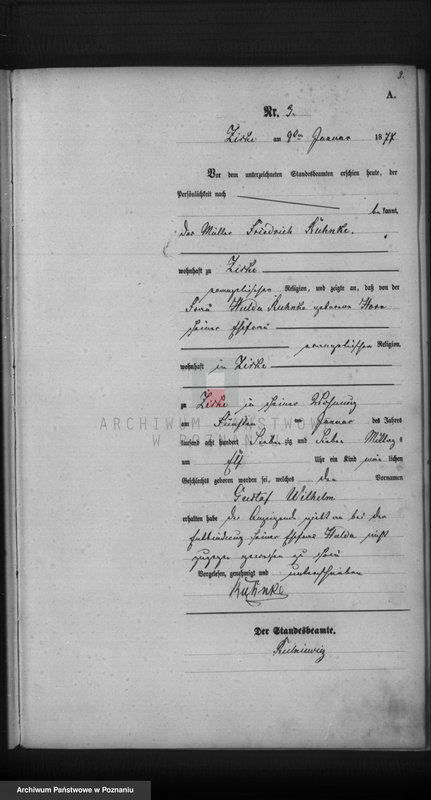 3.
A.
Nr. 3.
Zirke am 9ten Januar 1877
Vor dem unterzeichneten Standesbeamten erschien heute, der
Persönlichkeit nach
be kannt,
der Müller Friedrich Kuhnke.
wohnhaft zu Zirke
evangelischer Religion, und zeigte an, daß von der
Frau Hulda Kuhnke geborene
seiner Ehefrau
evangelischer Religion,
wohnhaft in Zirke
zu Zirke in seiner Wohnung
am Fünften Januar des Jahres
tausend acht hundert Sieben zig und Sieben Mittags
um Elf Uhr ein Kind männ lichen
Geschlechts geboren worden sei, welches den Vornamen
Gustaf Wilhelm
erhalten habe der Anzeigende giebt an bei der
Entbindung seiner Ehefrau Hulda
zugegen gewesen zu sein
Vorgelesen, genehmigt und unterschrieben
Kuhnke
Der Standesbeamte.
ARCHIWUM PAŃSTWOWE
W POZNANIU
Archiwum Państwowe w Poznaniu